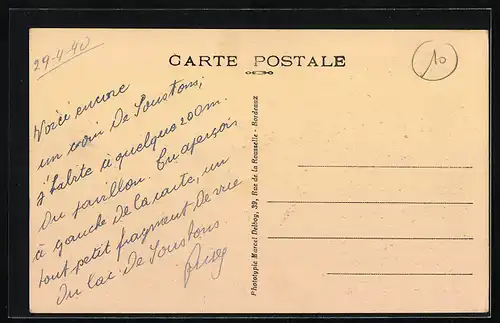 29-4-40
CARTE POSTALE
10
Voici encore
un coin De Soustons;
j'habite à quelque 200m.
Du pavillon. On aperçoit
à gauche De la carte, un
tout petit fragment De vue
Du lac De Soustons.
Phototypie Marcel Delboy, 39, Rue de la Rousselle - Bordeaux